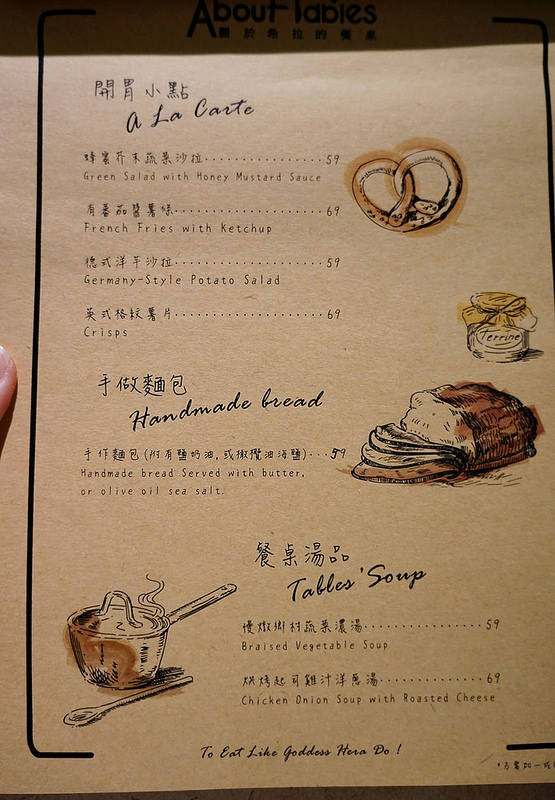 About Tables
關於希拉的餐桌
開胃小點
A La Carte
蜂蜜芥末蔬菜沙拉····················59
Green Salad with Honey Mustard Sauce
有番茄醬薯條····················69
French Fries with Ketchup
德式洋芋沙拉····················59
Germany-Style Potato Salad
英式格紋薯片····················69
Crisps
terrine
手做麵包
Handmade bread
手作麵包(附有鹽奶油,或橄欖油海鹽)···59
Handmade bread Served with butter,
or olive oil sea salt.
餐桌湯品
Tables' Soup
慢燉鄉村蔬菜濃湯····················59
Braised Vegetable Soup
烘烤起司雞汁洋蔥湯····················69
Chicken Onion Soup with Roasted Cheese
To Eat Like Goddess Hera Do !